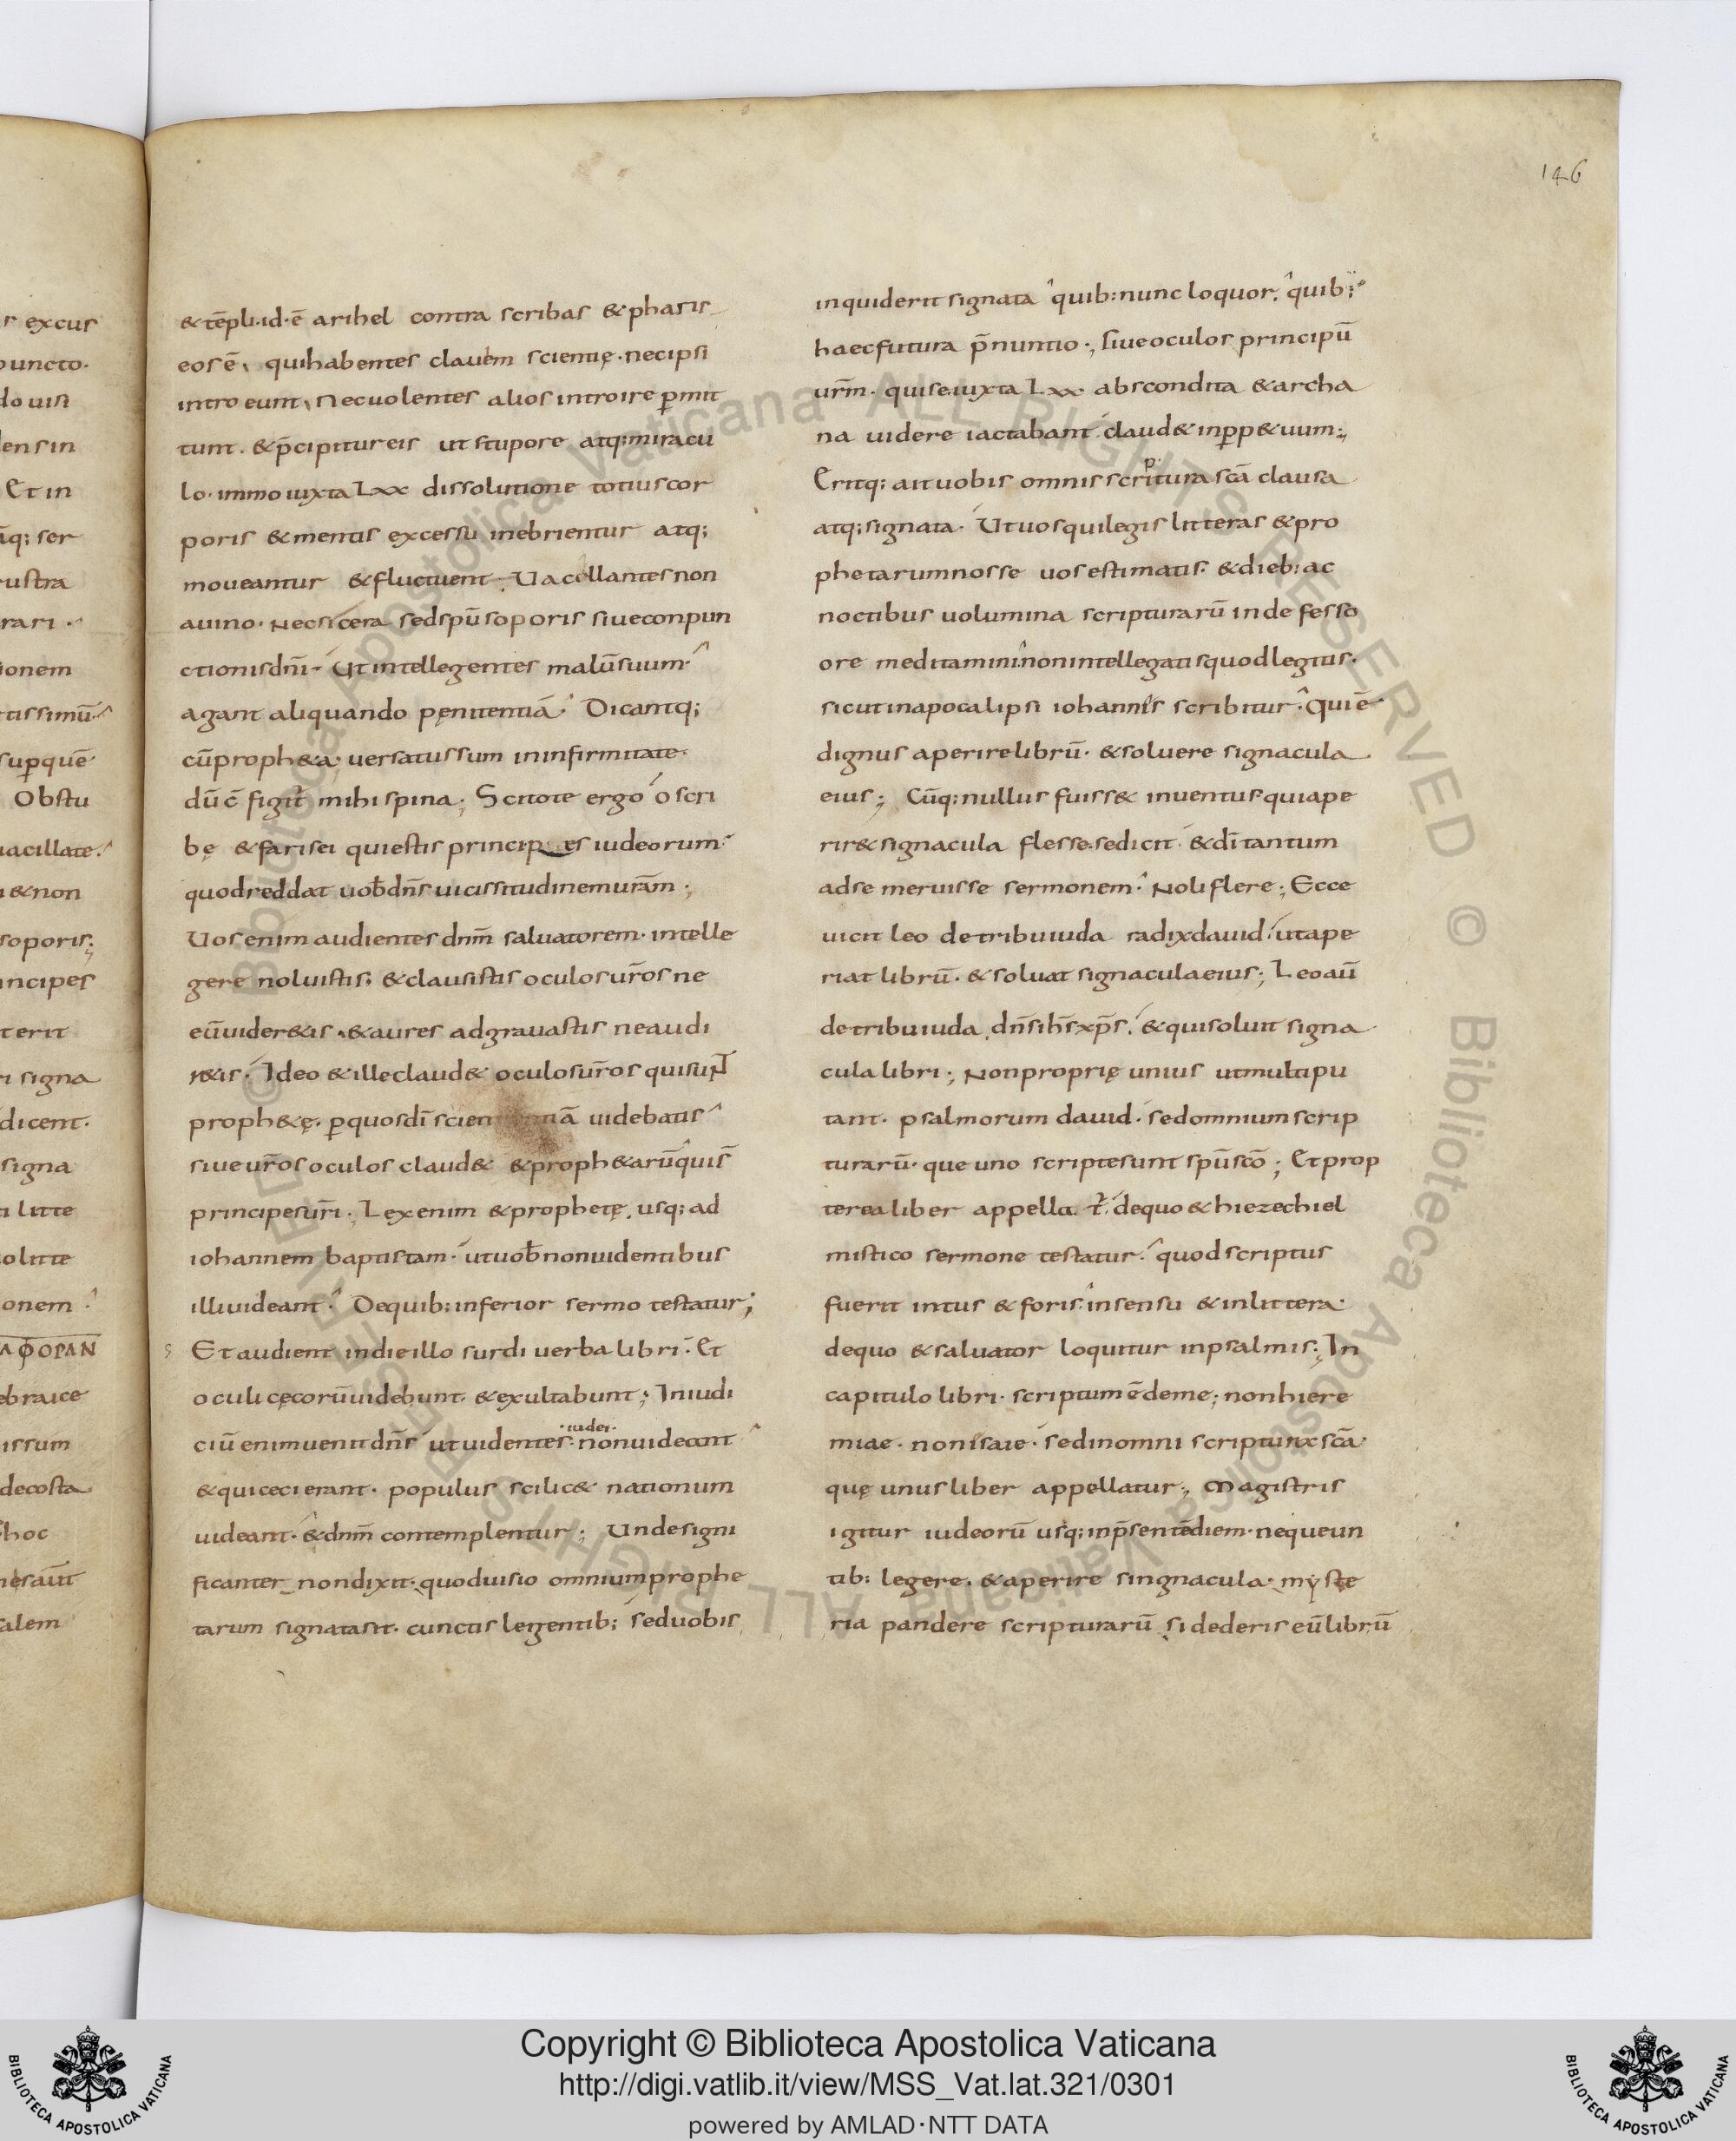 146
r excus
puncto.
do uisi
dens in
Et in
aq; ser
rustra
rari .
ionem
tissimū.
sup̱quē
Obstu
uacillate.
i & non
soporis;
incipes
terit
ri signa
dicent.
signa
ti litte
o litte
onem .
ΛΦΟΡΑΝ
ebraice
issum
decosta
hoc
salem
& tēpli. id. ē arihel contra scribas & pharis
eos ē, qui habentes clauem scientię. nec ipsi
intro eunt, Nec uolentes alios introire p̱mit
tunt. & p̄cipitur eis ut stupore atq; miracu
lo. immo iuxta Lxx dissolutione totius cor
poris & mentis excessu inebrientur atq;
moueantur & fluctuent. Uacillantes non
a uino. Nec sicera sed spū soporis siue conpun
ctionis dn̄i. Ut intellegentes malū suum
agant aliquando pęnitentiā. Dicantq;
cū proph&a. uersatus sum in infirmitate.
dū c̄ figit̄ mihi spina; Scitote ergo o scri
bę & farisei qui estis principes iudeorum
quod reddat uob̄ dn̄s uicissitudinem ur̄am;
Uos enim audientes dnm̄ saluatorem. intelle
gere noluistis. & clausistis oculos ur̄os ne
eū uider&is. & aures adgrauastis ne audi
r&is. Ideo & ille claud& oculos ur̄os qui suNT
proph&ę. p̱ quos dī scien uidebatis
siue ur̄os oculos claud& & proph&arū quis̄
principes ur̄i. Lex enim & prophetę. usq; ad
iohannem baptistam. ut uob̄ non uidentibus
illi uideant. De quib; inferior sermo testatur;
Et audient in die illo surdi uerba libri. Et
oculi cęcorū uidebunt. & exultabunt; In iudi
iudei.
ciū enim uenit dn̄s ut uidentes. non uideant
& qui ceci erant. populus scilic& nationum
uideant. & dnm̄ contemplentur; Unde signi
ficanter non dixit. quod uisio omnium prophe
tarum signata sit. cunctis legentib; sed uobis
inquid erit signata quib; nunc loquor. quib;
haec futura p̄nuntio; siue oculos principū
ur̄m. qui se iuxta Lxx abscondita & archa
na uidere iactabant. claud& inp̱p&uum;
Eritq; ait uobis omnis scriptura scā clausa
atq; signata. Ut uos qui legis litteras & pro
phetarum nosse uos estimatis. & dieb; ac
noctibus uolumina scripturarū indefesso
ore meditamini. non intellegatis quod legitis.
sicut in apocalipsi iohannis scribitur. Qui ē
dignus aperire librū. & soluere signacula
eius; Cūq; nullus fuiss& inuentus qui ape
rir& signacula flesse. se dicit. & dī tantum
ad se meruisse sermonem. Noli flere; Ecce
uicit leo de tribu iuda radix dauid. ut ape
riat librū. & soluat signacula eius; Leo aū
de tribu iuda. dn̄s ih̄s xp̄s. & qui soluit signa
cula libri; Non proprię unius ut multi pu
tant. psalmorum dauid. sed omnium scrip
turarū. que uno scripte sunt spū scō; Et prop
terea liber appella t̄. de quo & hiezechiel
mistico sermone testatur. quod scriptus
fuerit intus & foris. in sensu & in littera.
de quo & saluator loquitur in psalmis; In
capitulo libri. scriptum ē de me; non hiere
miae. non isaie. sed in omni scriptura scā
quę unus liber appellatur; Magistris
igitur iudeorū usq; in p̄sentē diem. nequeun
tib; legere. & aperire singnacula. myste
ria pandere scripturarū si dederis eū librū
Copyright © Biblioteca Apostolica Vaticana
http://digi.vatlib.it/view/MSS_Vat.lat.321/0301
powered by AMLAD·NTT DATA
BIBLIOTECA APOSTOLICA VATICANA
BIBLIOTECA APOSTOLICA VATICANA
© Biblioteca Apostolica Vaticana ALL RIGHTS RESERVED © Biblioteca Apostolica Vaticana ALL RIGHTS RESERVED